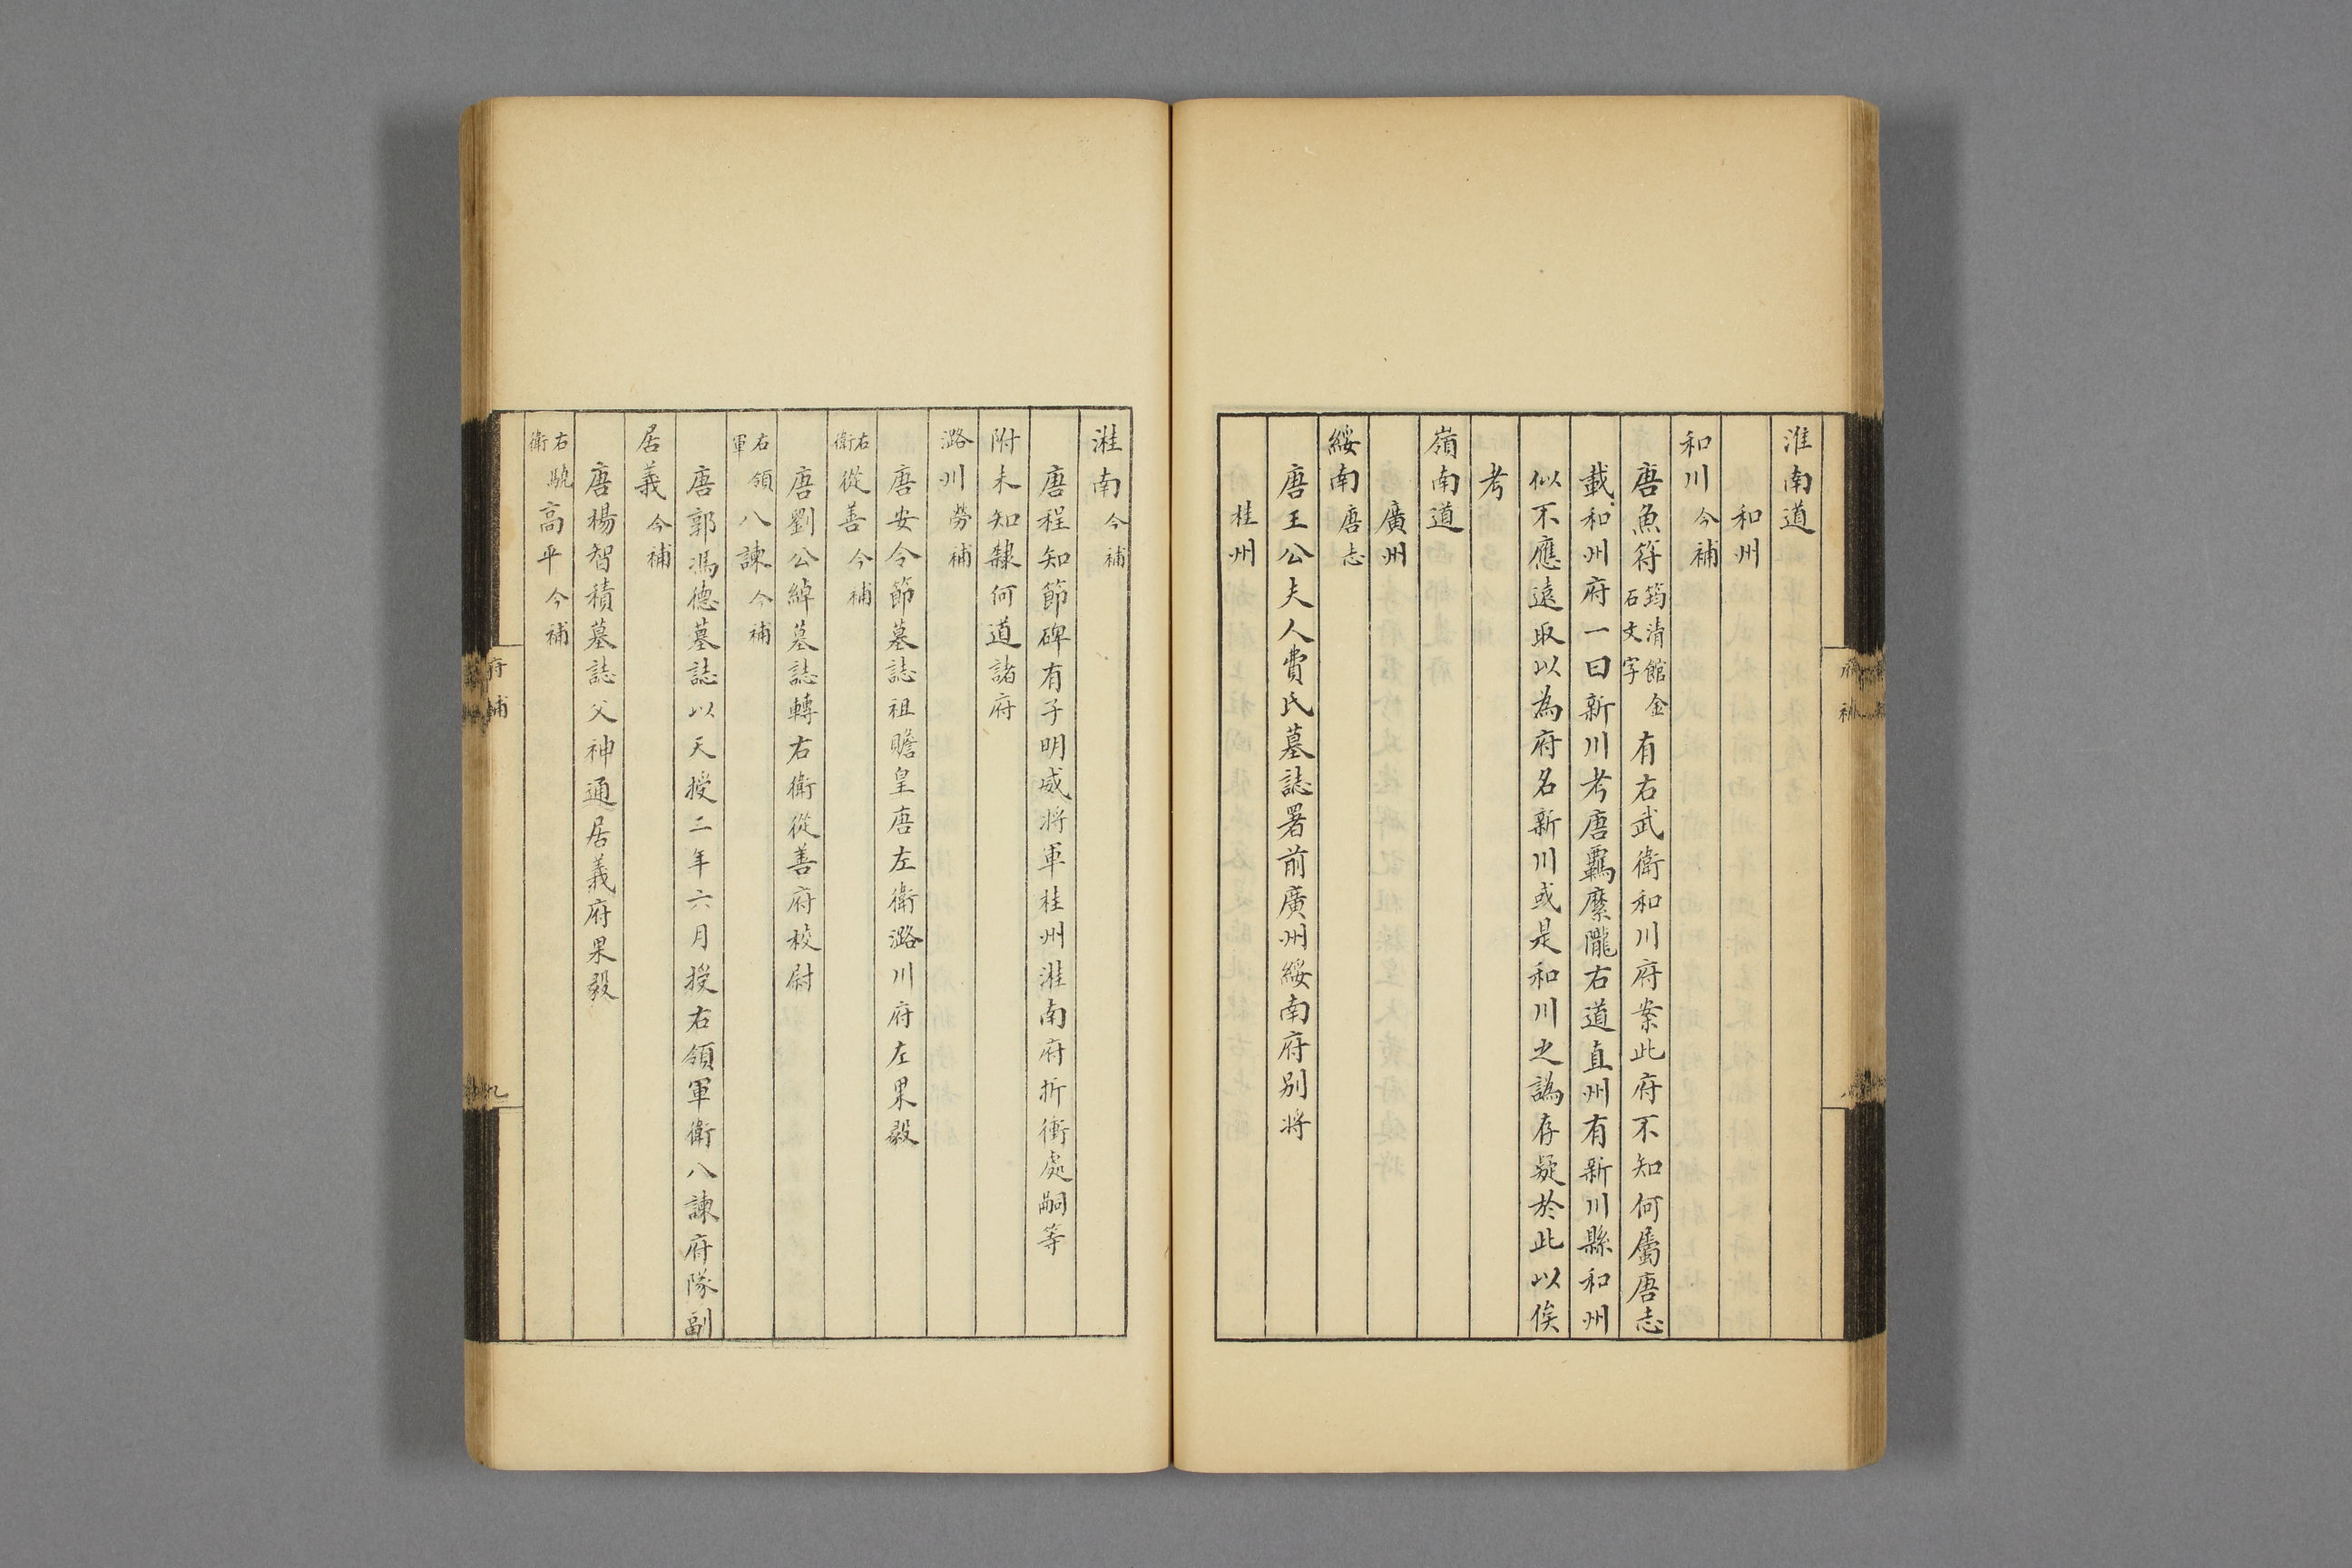 淮南道
和州
和川今補
唐魚符筠清館金石文字有右武衛和川府案此府不知何屬唐志
載和州府一曰新川考唐羈縻隴右道直州有新川縣和州
似不應遠取以為府名新川或是和川之譌存疑於此以俟
考
嶺南道
廣州
綏南唐志
唐王公夫人費氏墓誌署前廣州綏南府別將
桂州
灕南今補
唐程知節碑有子明威將軍桂州灕南府折衝處嗣等
附未知隸何道諸府
潞川勞補
唐安令節墓誌祖瞻皇唐左衛潞川府左果毅
右衛從善今補
唐劉公綽墓誌轉右衛從善府校尉
右領軍八諫今補
唐郭馮德墓誌以天授二年六月授右領軍衛八諫府隊副
居義今補
唐楊智積墓誌父神通居義府果毅
右驍衛高平今補
府補
九